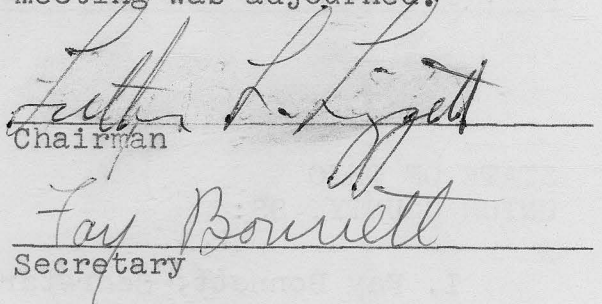 meeting was adjourned.
Luther L. Liggett
Chairman
Fay Bonnett
Secretary